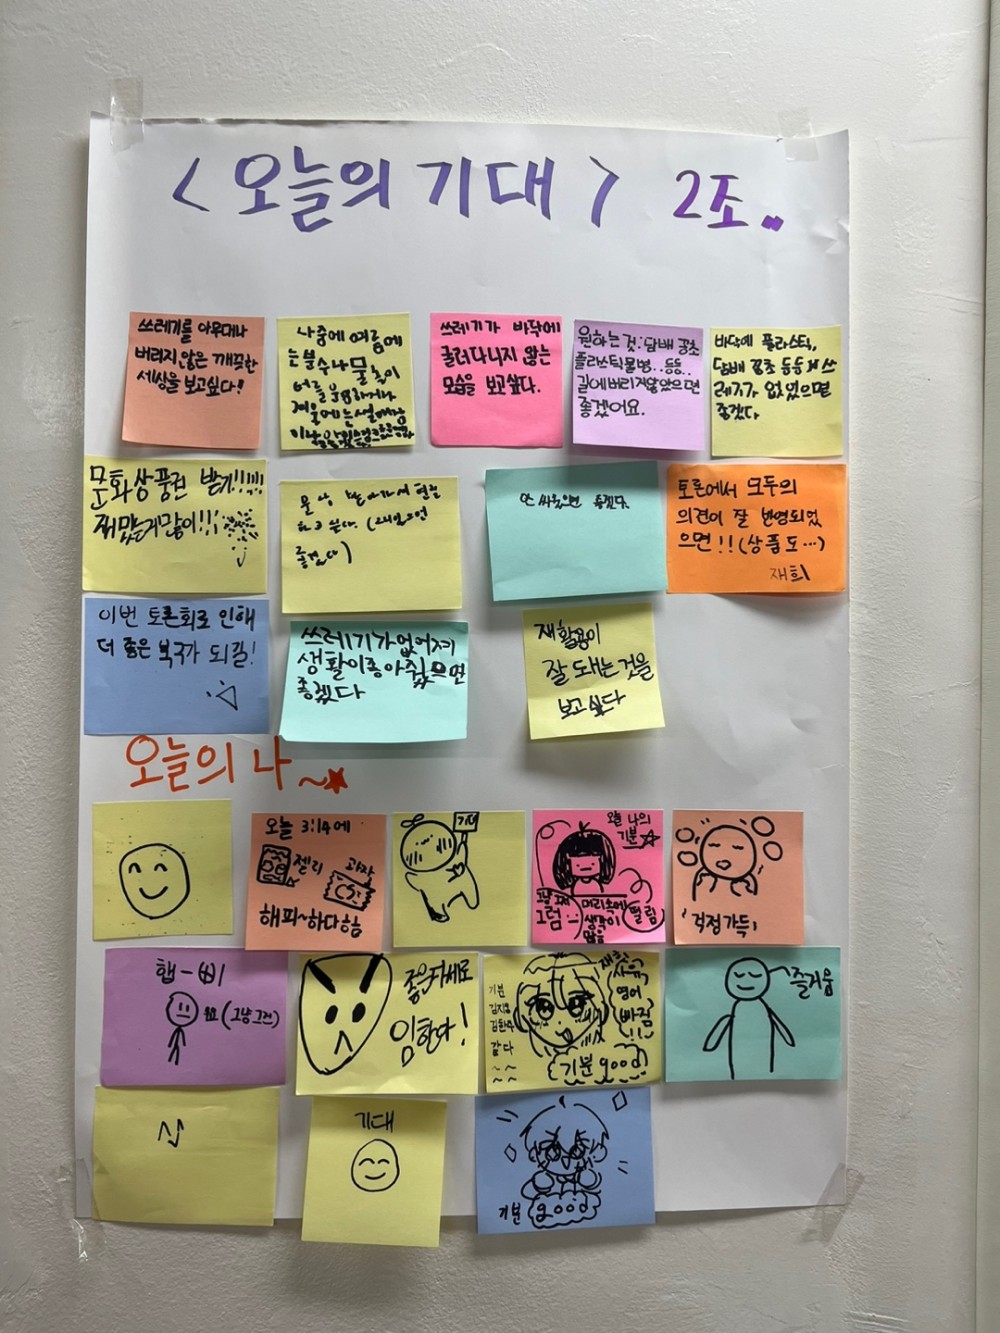 <오늘의 기대> 2조
쓰레기를 아무데나
버리지 않은 깨끗한
세상을 보고싶다!
나중에 여름에
는 분수나 물놀이
겨울에는 썰매장
쓰레기가 바닥에
굴러다니지 않는
모습을 보고싶다.
원하는 것: 담배 꽁초
플라스틱 물병..등등..
길에 버리지 않았으면
좋겠어요.
바닥에 플라스틱,
담배 꽁초 등등 쓰
레기가 없었으면
좋겠다
문화상품권 받기!!!!!
재밌는게많이!!
안 싸웠으면 좋겠다.
토론에서 모두의
의견이 잘 반영되었
으면!! (상품도...)
재희
이번 토론회로 인해
더 좋은 북구가 되길!
쓰레기가없어져
생활이종아줬으면
좋겠다
재활용이
잘 돼는 것을
보고 싶다
오늘의 나~
오늘 3:14에
젤리 과자
해피~하다하하
기대
오늘 나의
기분
그럼
머리속에
생각이
많음
떨림
걱정가득!
햅-삐
(그냥그전)
좋은자세로
임한다!
기분
같다
영어
빠짐
!!
기분 good
즐거움
기대
기분 good